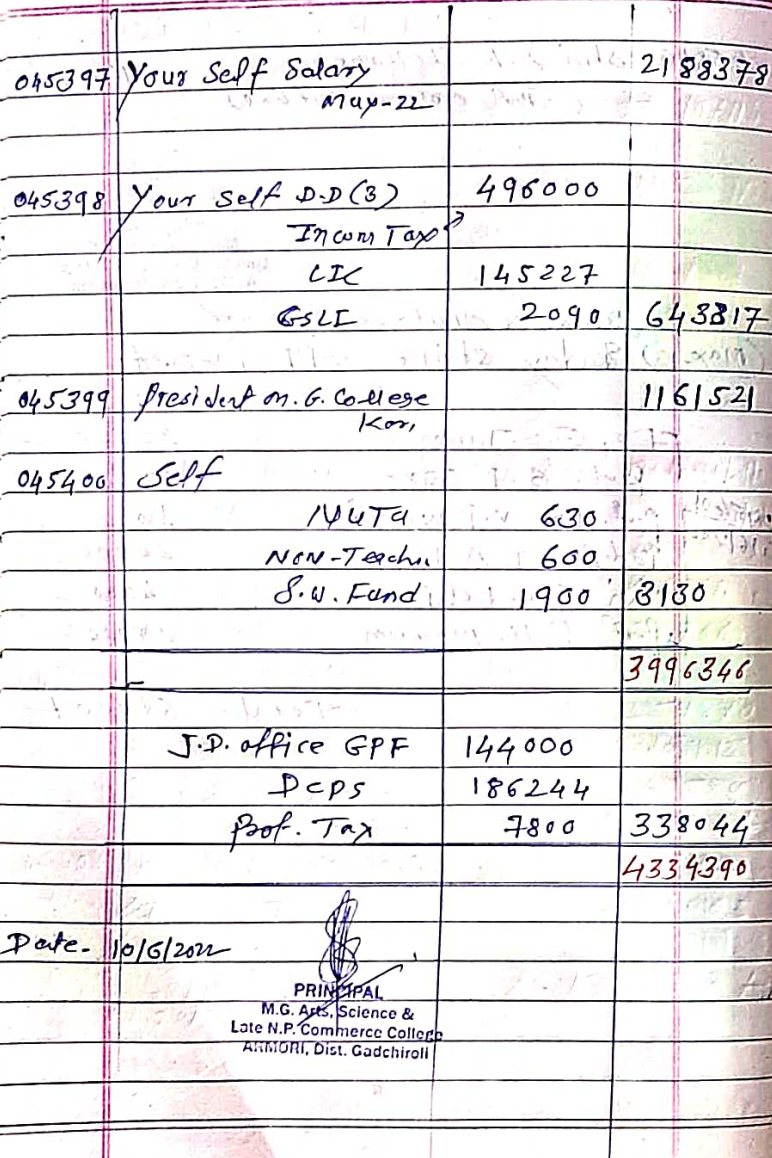 045397 Your Self Salary 2188378
May-22
045398 Your Self D.D (3) 496000
Incom Tax
LIC 145227
GSLI 2090 643317
045399 President M.G. College 1161521
Kor,
045400 Self
NUTA 630
Non-Teachn. 600
S.W. Fund 1900 3130
3996346
J.D. office GPF 144000
DCPS 186244
Prof. Tax 7800 338044
4334390
Date- 10/6/2022
PRINCIPAL
M.G. Arts, Science &
Late N.P. Commerce College
ARMORI, Dist. Gadchiroli